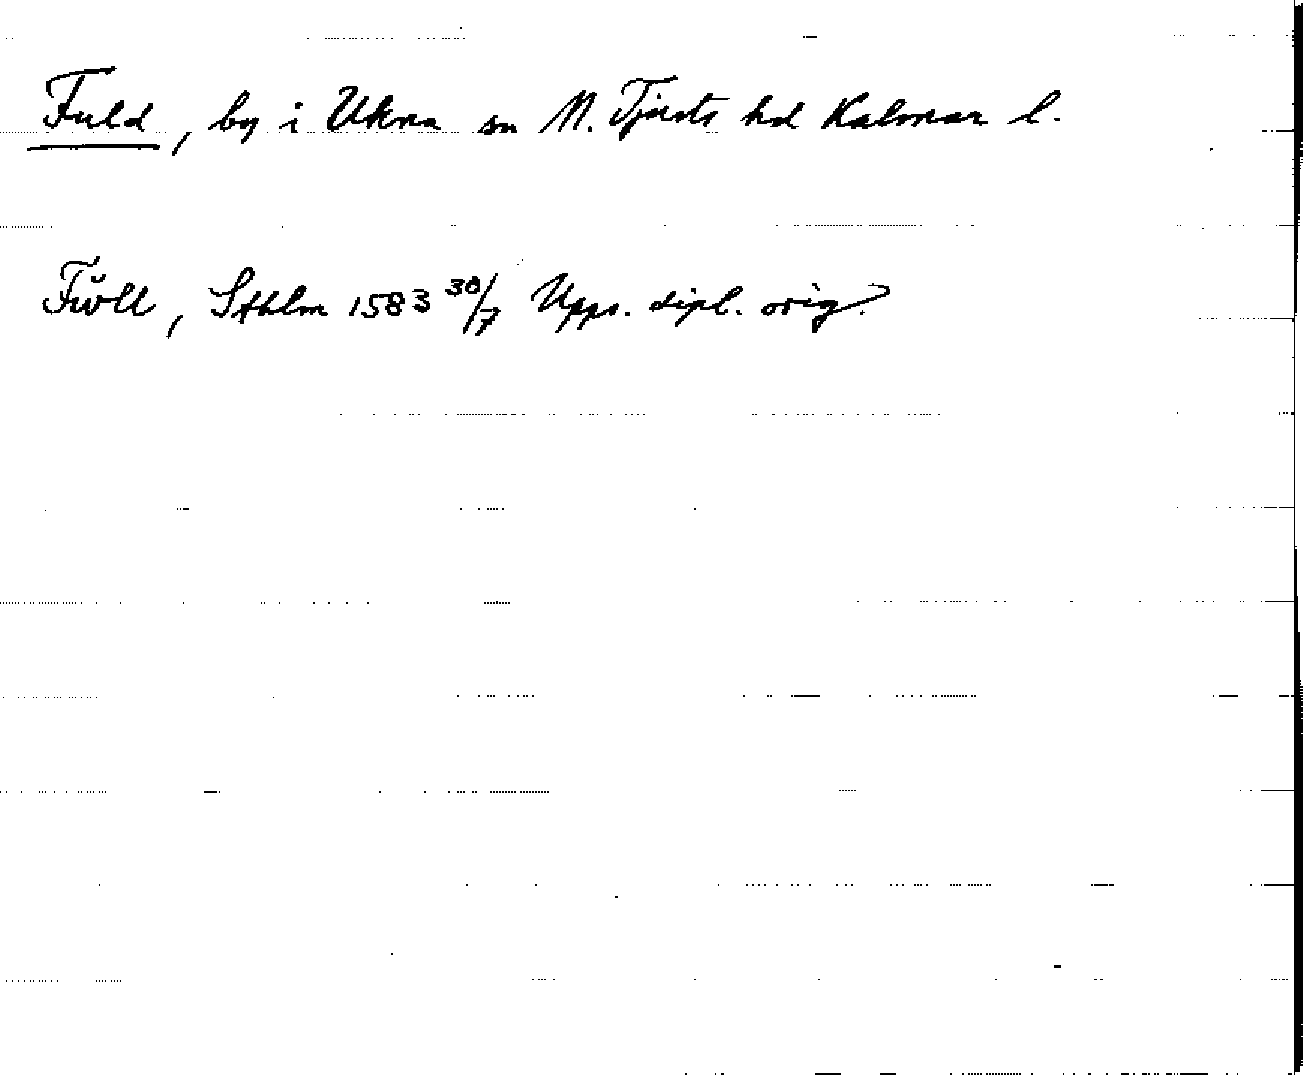 Fuld, by i Ukna sn N. Tjusts hd Kalmar l.
Fŭll, Sthlm 1583 30/7 Upps. dipl. orig.